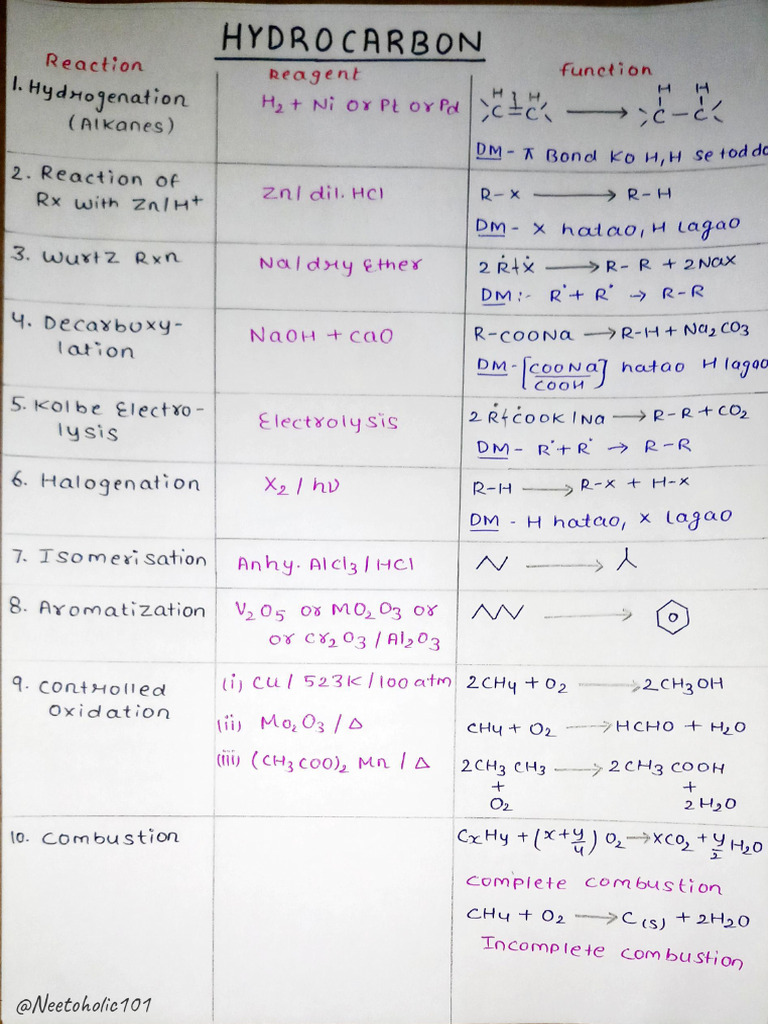 HYDROCARBON
Reaction
Reagent
function
1. Hydrogenation
(Alkanes)
H₂ + Ni or Pt or Pd
H H
C = C → C - C
H H
DM - π Bond Ko H, H se todd
2. Reaction of
Rx with Zn/H⁺
Zn/ dil. HCl
R - X → R - H
DM - X hatao, H lagao
3. Wurtz Rxn
Na/dry Ether
2 Ṙ + Ẋ → R - R + 2NaX
DM :- R˙ + R˙ → R - R
4. Decarboxy-
lation
NaOH + CaO
R-COONa → R-H + Na₂CO₃
DM - [COONa/COOH] hatao H lagao
5. Kolbe Electro-
lysis
Electrolysis
2 Ṙ + ĊOOK/Na → R-R + CO₂
DM - R˙ + R˙ → R - R
6. Halogenation
X₂ / hν
R-H → R-X + H-X
DM - H hatao, X lagao
7. Isomerisation
Anhy. AlCl₃ / HCl
8. Aromatization
V₂O₅ or MO₂O₃ or
or Cr₂O₃ / Al₂O₃
9. Controlled
Oxidation
(i) Cu / 523K / 100 atm
2CH₄ + O₂ → 2CH₃OH
(ii) Mo₂O₃ / Δ
CH₄ + O₂ → HCHO + H₂O
(iii) (CH₃COO)₂ Mn / Δ
2CH₃ CH₃ → 2 CH₃ COOH
+ +
O₂ 2H₂O
10. Combustion
CxHy + (x + y/4) O₂ → XCO₂ + y/2 H₂O
Complete combustion
CH₄ + O₂ → C(s) + 2H₂O
Incomplete combustion
@Neetoholic101